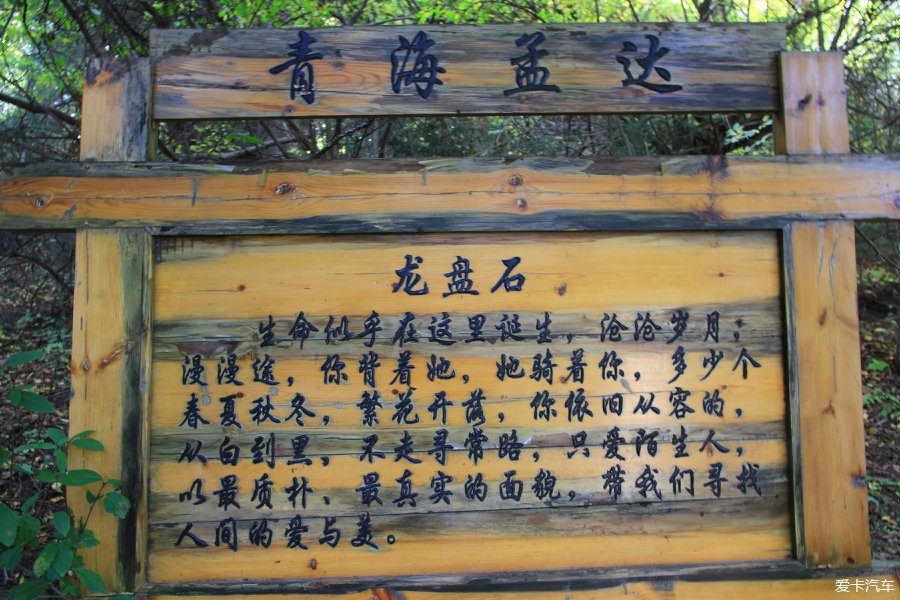 青海孟达
龙盘石
生命似乎在这里诞生，沧沧岁月；
漫漫途，你背着她，她骑着你，多少个
春夏秋冬，繁花开落，你依旧从容的，
从白到黑，不走寻常路，只爱陌生人，
以最质朴、最真实的面貌，带我们寻找
人间的爱与美。
爱卡汽车